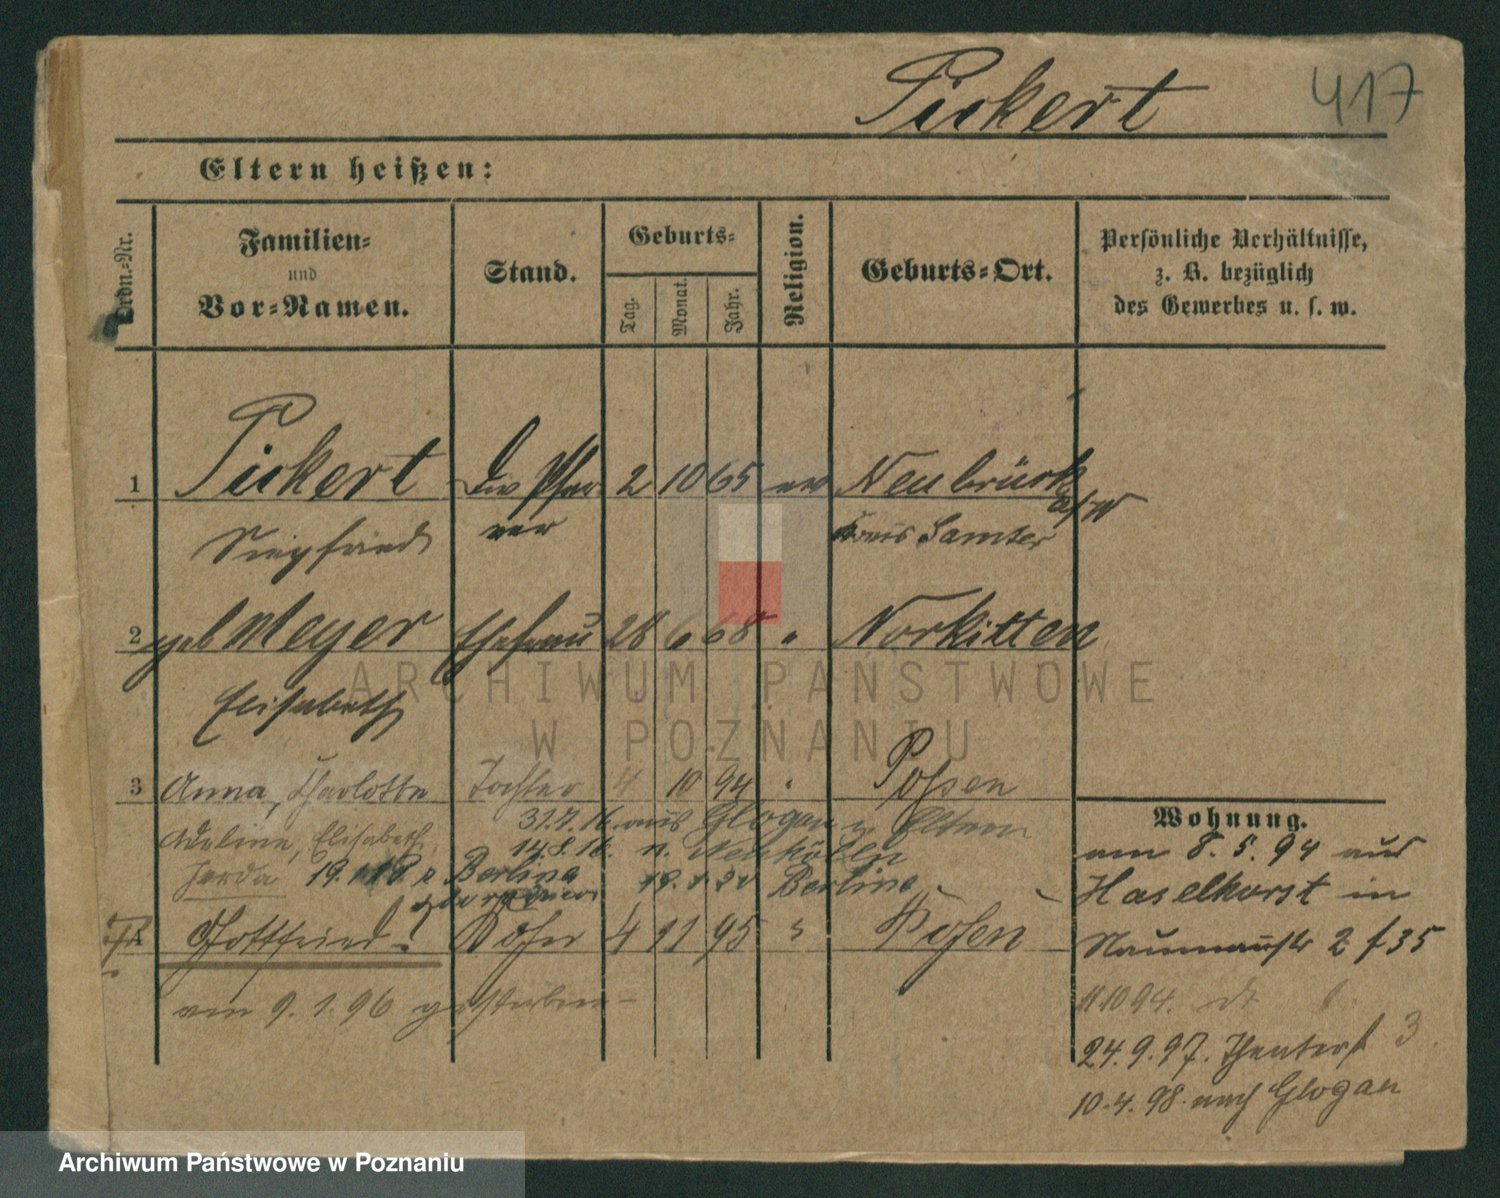 Pickert 417
Eltern heißen:
Ordn.-Nr.
Familien-
und
Vor-Namen.
Stand.
Geburts-
Tag.
Monat.
Jahr.
Religion.
Geburts-Ort.
Persönliche Verhältnisse,
z. B. bezüglich
des Gewerbes u. s. w.
1 Pickert Div Pfar 2 10 65 ev Neubrück a/W
Siegfried rer Kreis Samter
2 geb Meyer Ehefrau 28 6 68 " Norkitten
Elisabeth
3 Anna, Charlotte Tochter 4 10 94 " Posen
Adeline, Elisabeth, 31.7.16. aus Glogau z Eltern
14.8.16. n. Neukölln
Gerda 19.1.18 Berlin
Berlin
4 Gottfried Sohn 4 11 95 " Posen
am 9.1.96 gestorben
Wohnung.
am 8.5.94 aus
Haselhorst in
Naumannstr 2 f 35
11.10 94.
24.9.97. Theaterst 3
10.4.98. nach Glogau
ARCHIWUM PAŃSTWOWE
W POZNANIU
Archiwum Państwowe w Poznaniu